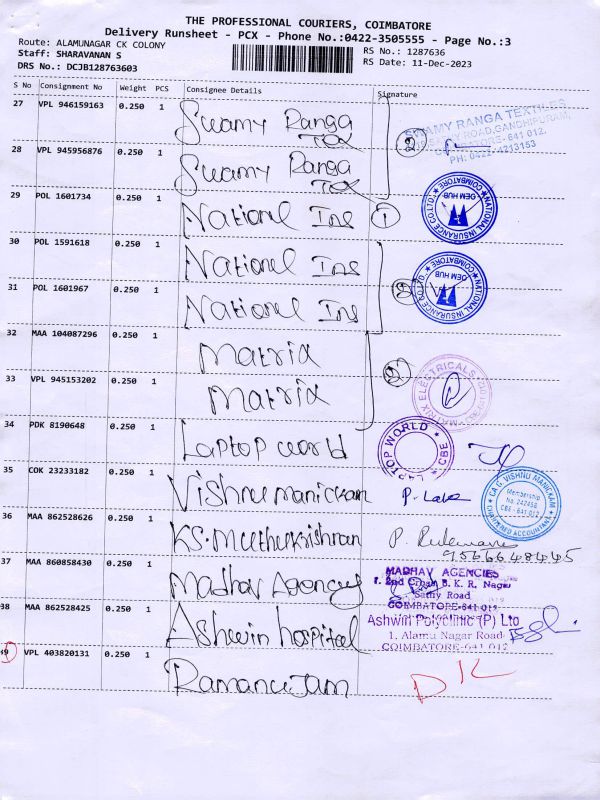 THE PROFESSIONAL COURIERS, COIMBATORE
Delivery Runsheet - PCX - Phone No.:0422-3505555 - Page No.:3
Route: ALAMUNAGAR CK COLONY
RS No.: 1287636
Staff: SHARAVANAN S
RS Date: 11-Dec-2023
DRS No.: DCJB128763603
S No Consignment No Weight PCS Consignee Details Signature
27 VPL 946159163 0.250 1 Swamy Ranga Tex
SWAMY RANGA TEXTILES
ROAD, GANDHIPURAM,
641 012.
PH: 0422-4213153
2
28 VPL 945956876 0.250 1 Swamy Ranga Tex
29 POL 1601734 0.250 1 National Ins 1
NATIONAL INSURANCE CO. LTD. COIMBATORE
OEM HUB
30 POL 1591618 0.250 1 National Ins
31 POL 1601967 0.250 1 National Ins 2
NATIONAL INSURANCE CO. LTD. COIMBATORE
OEM HUB
32 MAA 104087296 0.250 1 Matrix 2
33 VPL 945153202 0.250 1 Matrix
MATRIX ELECTRICALS
34 PDK 8190648 0.250 1 Laptop world
LAPTOP WORLD CBE
35 COK 23233182 0.250 1 Vishnu manickam
CA G. VISHNU MANICKAM
Membership
No. 242458
CBE - 641 012.
CHARTERED ACCOUNTANT
36 MAA 862528626 0.250 1 KS. Muthukrishnan P.
9566648445
37 MAA 860858430 0.250 1 Madhav Agency
MADHAV AGENCIES
B. K. R. Nagar
Road
COIMBATORE-641 012
38 MAA 862528425 0.250 1 Ashwin hospital
Ashwin Polyclinic (P) Ltd
1, Alamu Nagar Road
COIMBATORE-641 012
39 VPL 403820131 0.250 1 Ramanujam DL